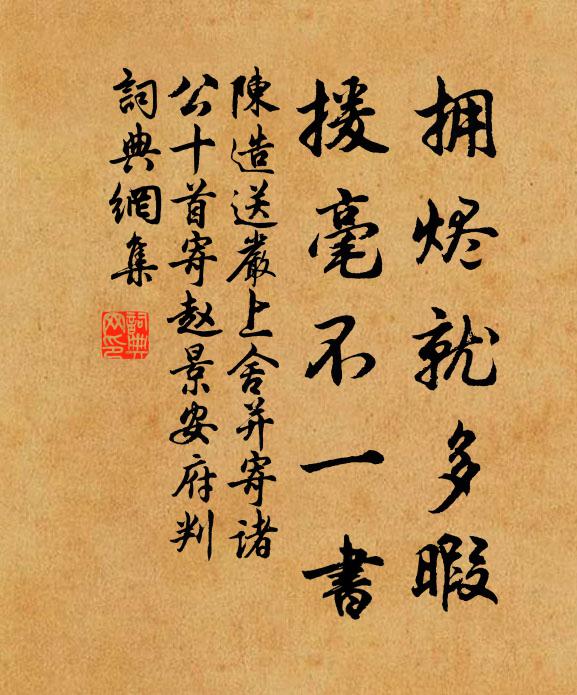 拥烬就多暇
援毫不一書
陳造送嚴上舍并寄諸
公十首寄赵景安府判
詞典網集
詞典
网印